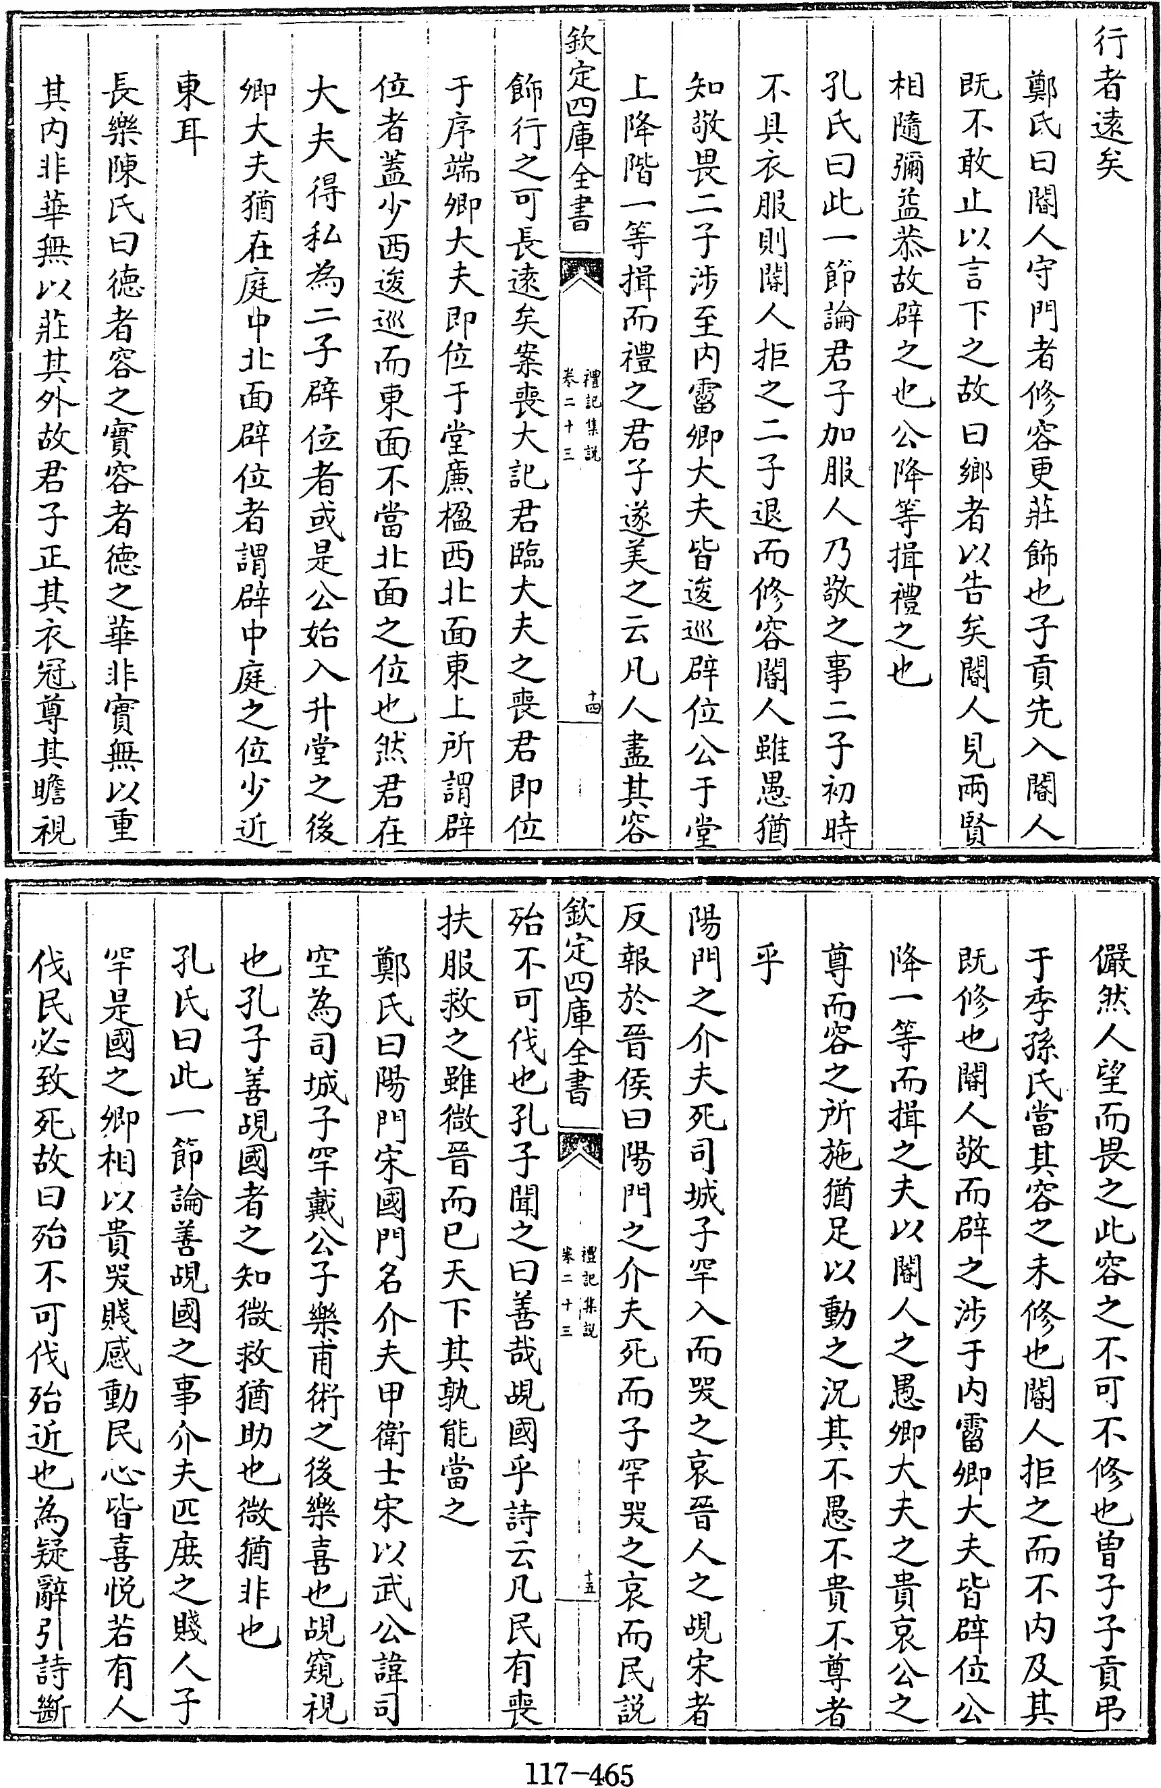 行者遠矣
鄭氏曰閽人守門者修容更莊飾也子貢先入閽人
既不敢止以言下之故曰鄉者以告矣閽人見兩賢
相隨彌益恭故辟之也公降等揖禮之也
孔氏曰此一節論君子加服人乃敬之事二子初時
不具衣服則閽人拒之二子退而修容閽人雖愚猶
知敬畏二子涉至内霤卿大夫皆逡巡辟位公于堂
上降階一等揖而禮之君子遂美之云凡人盡其容
欽定四庫全書
禮記集説
卷二十三
十四
飾行之可長遠矣案喪大記君臨大夫之喪君即位
于序端卿大夫即位于堂廉楹西北面東上所謂辟
位者蓋少西逡巡而東面不當北面之位也然君在
大夫得私為二子辟位者或是公始入升堂之後
卿大夫猶在庭中北面辟位者謂辟中庭之位少近
東耳
長樂陳氏曰德者容之實容者德之華非實無以重
其内非華無以莊其外故君子正其衣冠尊其瞻視
儼然人望而畏之此容之不可不修也曽子子貢弔
于季孫氏當其容之未修也閽人拒之而不内及其
既修也閽人敬而辟之涉于内霤卿大夫皆辟位公
降一等而揖之夫以閽人之愚卿大夫之貴哀公之
尊而容之所施猶足以動之況其不愚不貴不尊者
乎
陽門之介夫死司城子罕入而哭之哀晉人之覘宋者
反報於晉侯曰陽門之介夫死而子罕哭之哀而民説
欽定四庫全書
禮記集説
卷二十三
十五
殆不可伐也孔子聞之曰善哉覘國乎詩云凡民有喪
扶服救之雖微晉而已天下其孰能當之
鄭氏曰陽門宋國門名介夫甲衛士宋以武公諱司
空為司城子罕戴公子樂甫術之後樂喜也覘窺視
也孔子善覘國者之知微救猶助也微猶非也
孔氏曰此一節論善覘國之事介夫匹庶之賤人子
罕是國之卿相以貴哭賤感動民心皆喜悦若有人
伐民必致死故曰殆不可伐殆近也為疑辭引詩斷
117-465